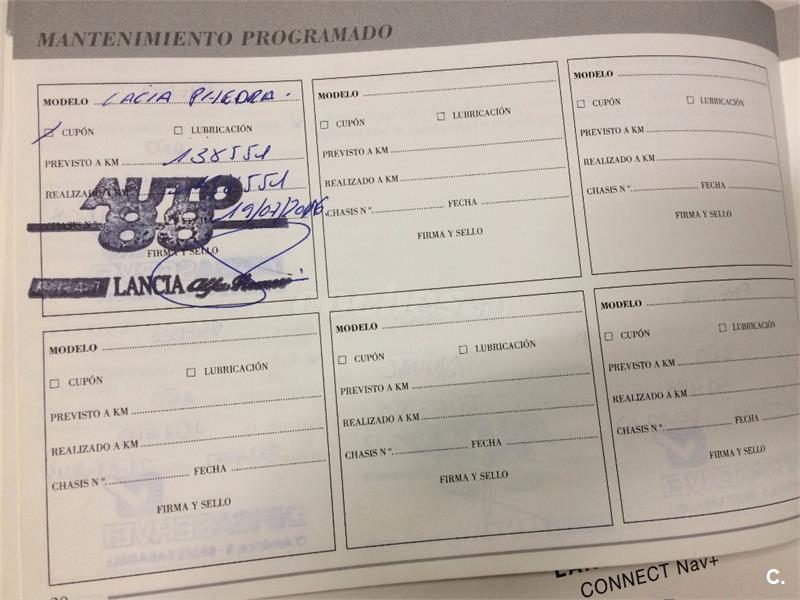 MANTENIMIENTO PROGRAMADO
MODELO LACIA PHEDRA.
CUPÓN LUBRICACIÓN
PREVISTO A KM 138551
REALIZADO A KM 138551
AUTO 88
CHASIS N° 19/07/2016
FIRMA Y SELLO
FIAT LANCIA Alfa Romeo
MODELO
CUPÓN LUBRICACIÓN
PREVISTO A KM
REALIZADO A KM
CHASIS N° FECHA
FIRMA Y SELLO
MODELO
CUPÓN LUBRICACIÓN
PREVISTO A KM
REALIZADO A KM
CHASIS N° FECHA
FIRMA Y SELLO
MODELO
CUPÓN LUBRICACIÓN
PREVISTO A KM
REALIZADO A KM
CHASIS N° FECHA
FIRMA Y SELLO
MODELO
CUPÓN LUBRICACIÓN
PREVISTO A KM
REALIZADO A KM
CHASIS N° FECHA
FIRMA Y SELLO
MODELO
CUPÓN LUBRICACIÓN
PREVISTO A KM
REALIZADO A KM
CHASIS N° FECHA
FIRMA Y SELLO
CONNECT Nav+
C.